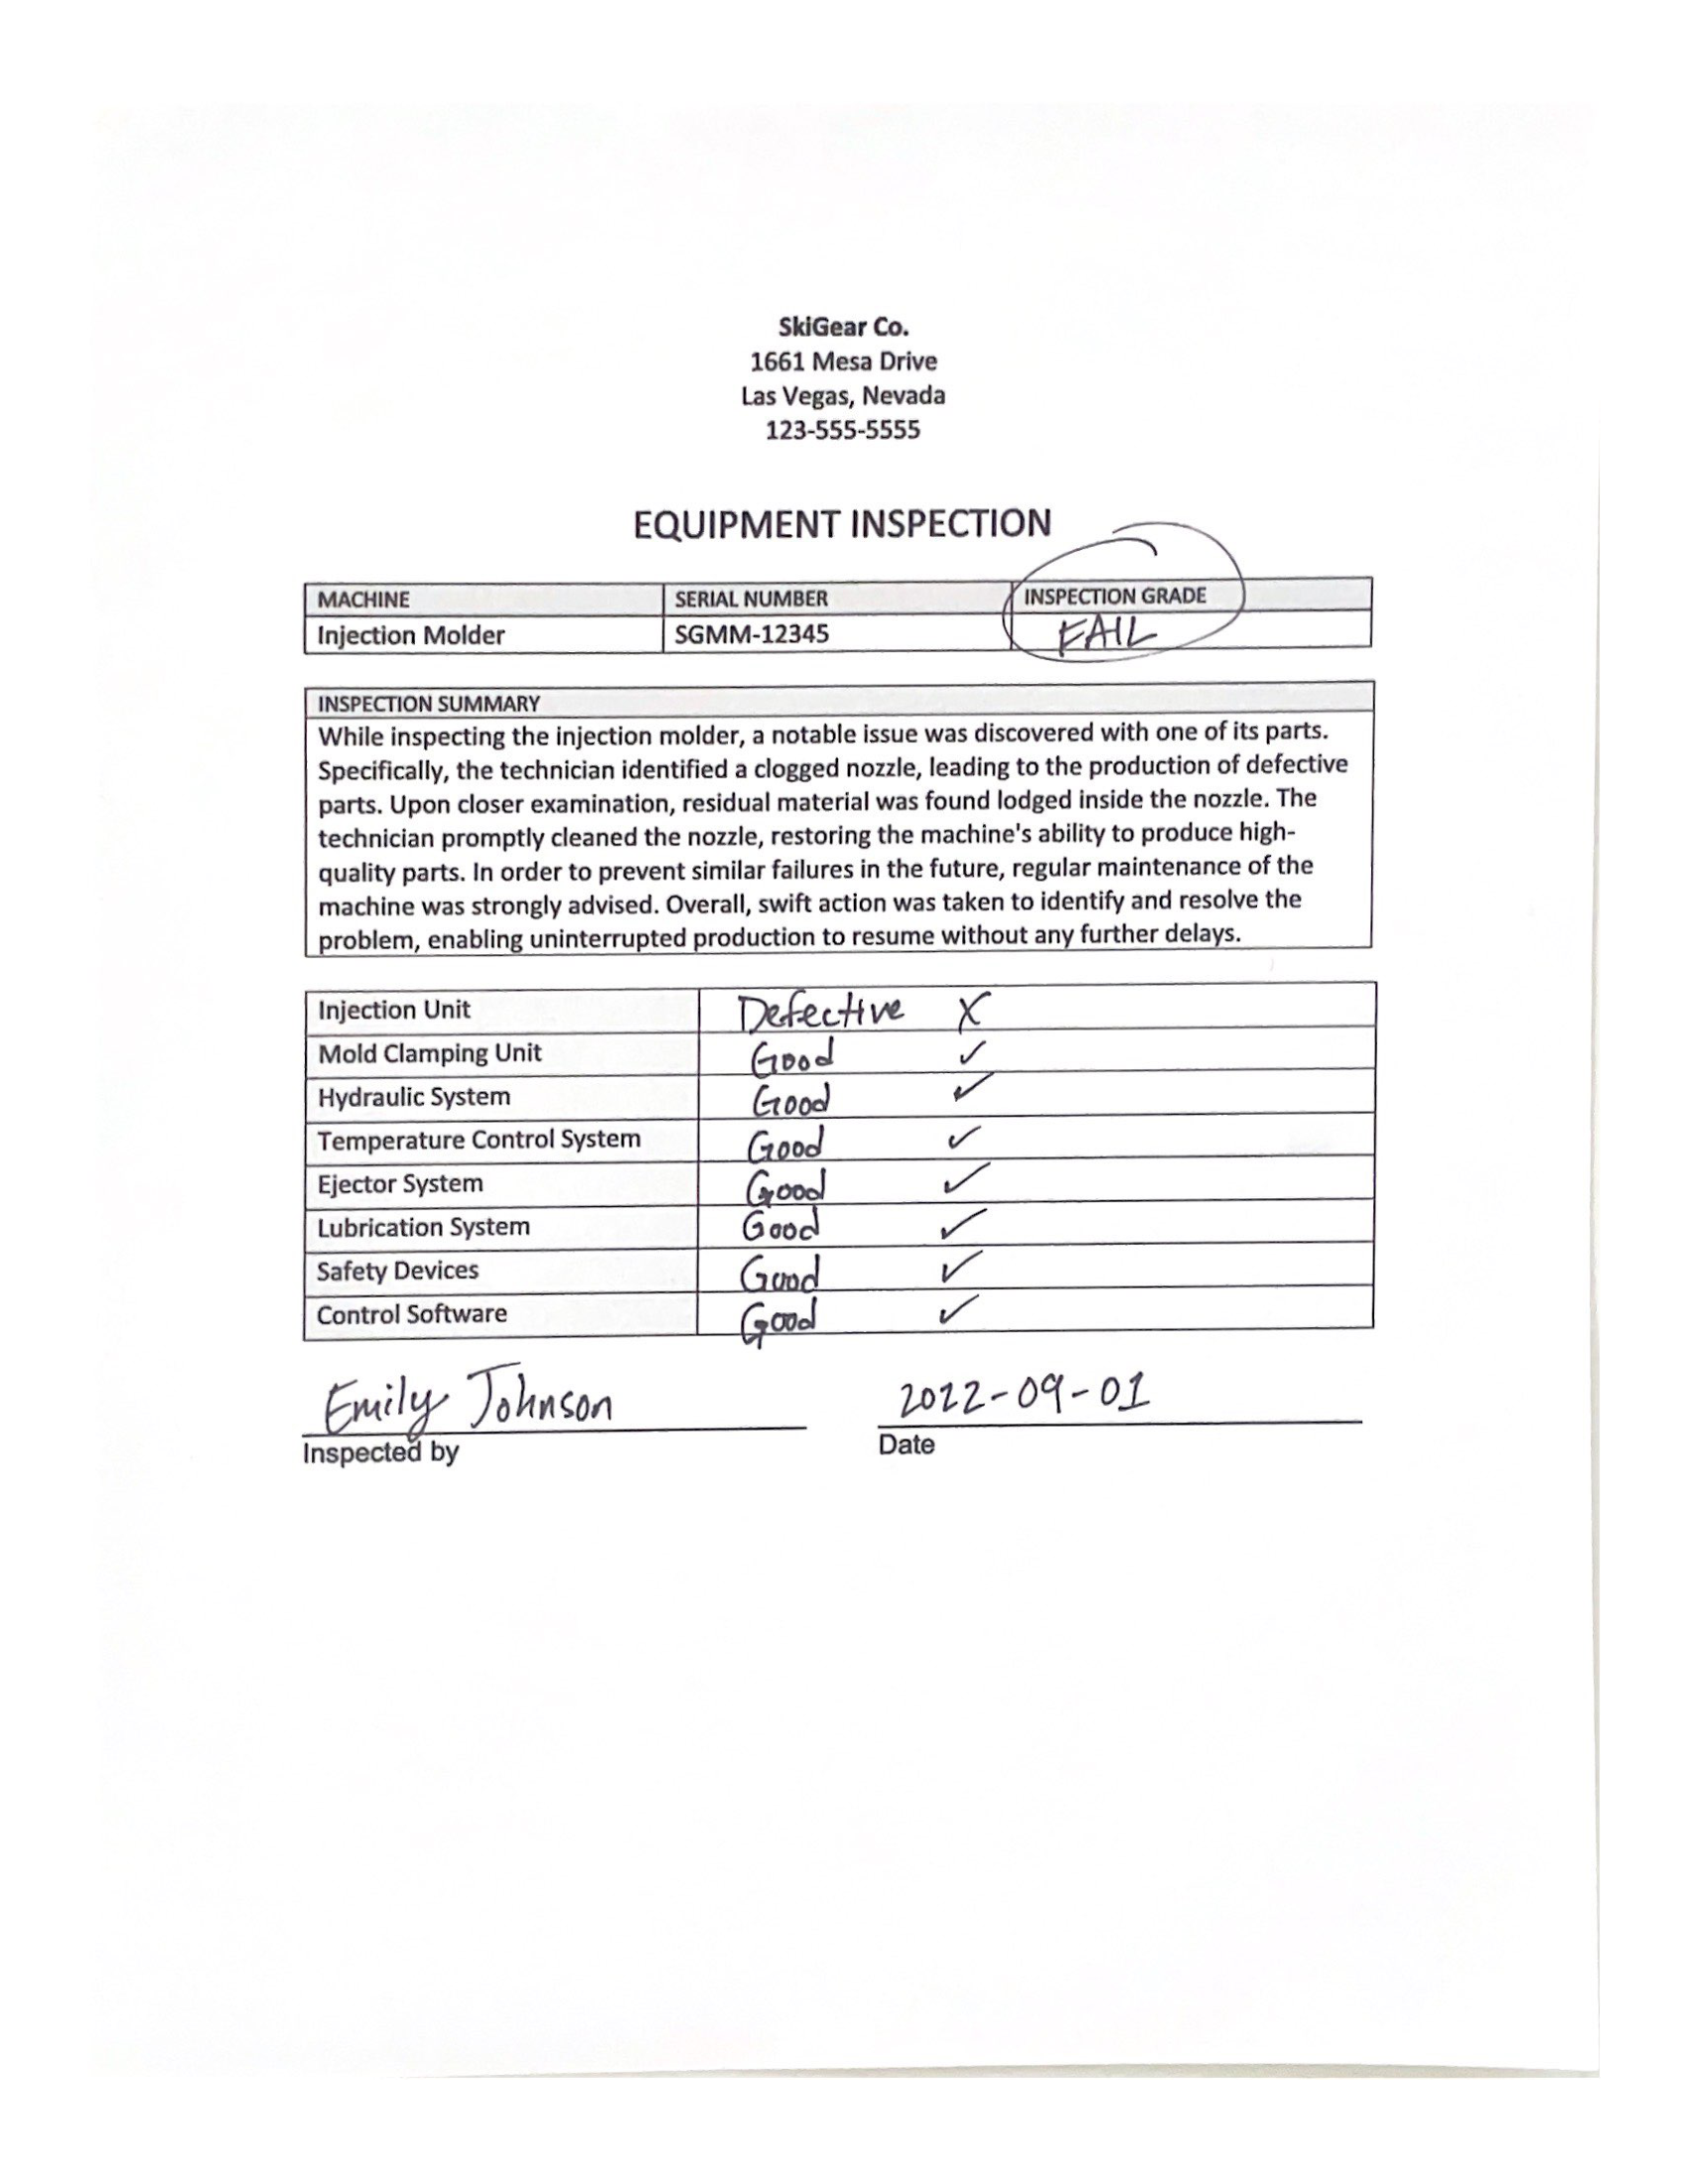 SkiGear Co.
1661 Mesa Drive
Las Vegas, Nevada
123-555-5555
EQUIPMENT INSPECTION
MACHINE SERIAL NUMBER INSPECTION GRADE
Injection Molder SGMM-12345 FAIL
INSPECTION SUMMARY
While inspecting the injection molder, a notable issue was discovered with one of its parts.
Specifically, the technician identified a clogged nozzle, leading to the production of defective
parts. Upon closer examination, residual material was found lodged inside the nozzle. The
technician promptly cleaned the nozzle, restoring the machine's ability to produce high-
quality parts. In order to prevent similar failures in the future, regular maintenance of the
machine was strongly advised. Overall, swift action was taken to identify and resolve the
problem, enabling uninterrupted production to resume without any further delays.
Injection Unit Defective X
Mold Clamping Unit Good ✓
Hydraulic System Good ✓
Temperature Control System Good ✓
Ejector System Good ✓
Lubrication System Good ✓
Safety Devices Good ✓
Control Software Good ✓
Emily Johnson 2022-09-01
Inspected by Date